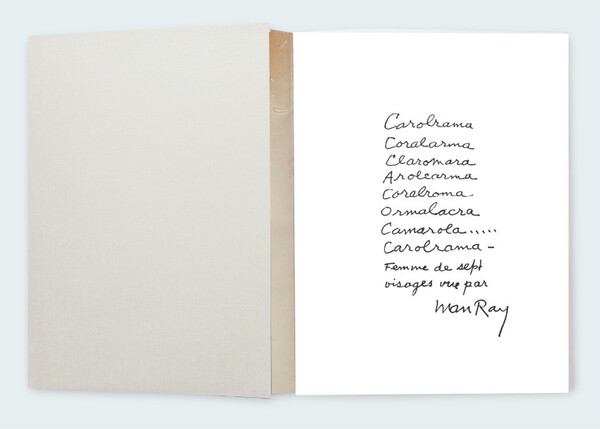 Carolrama
Coralarma
Claromara
Arolcarma
Coralroma
Ormalacra
Camarola.....
Carolrama -
Femme de sept
visages vue par
Man Ray